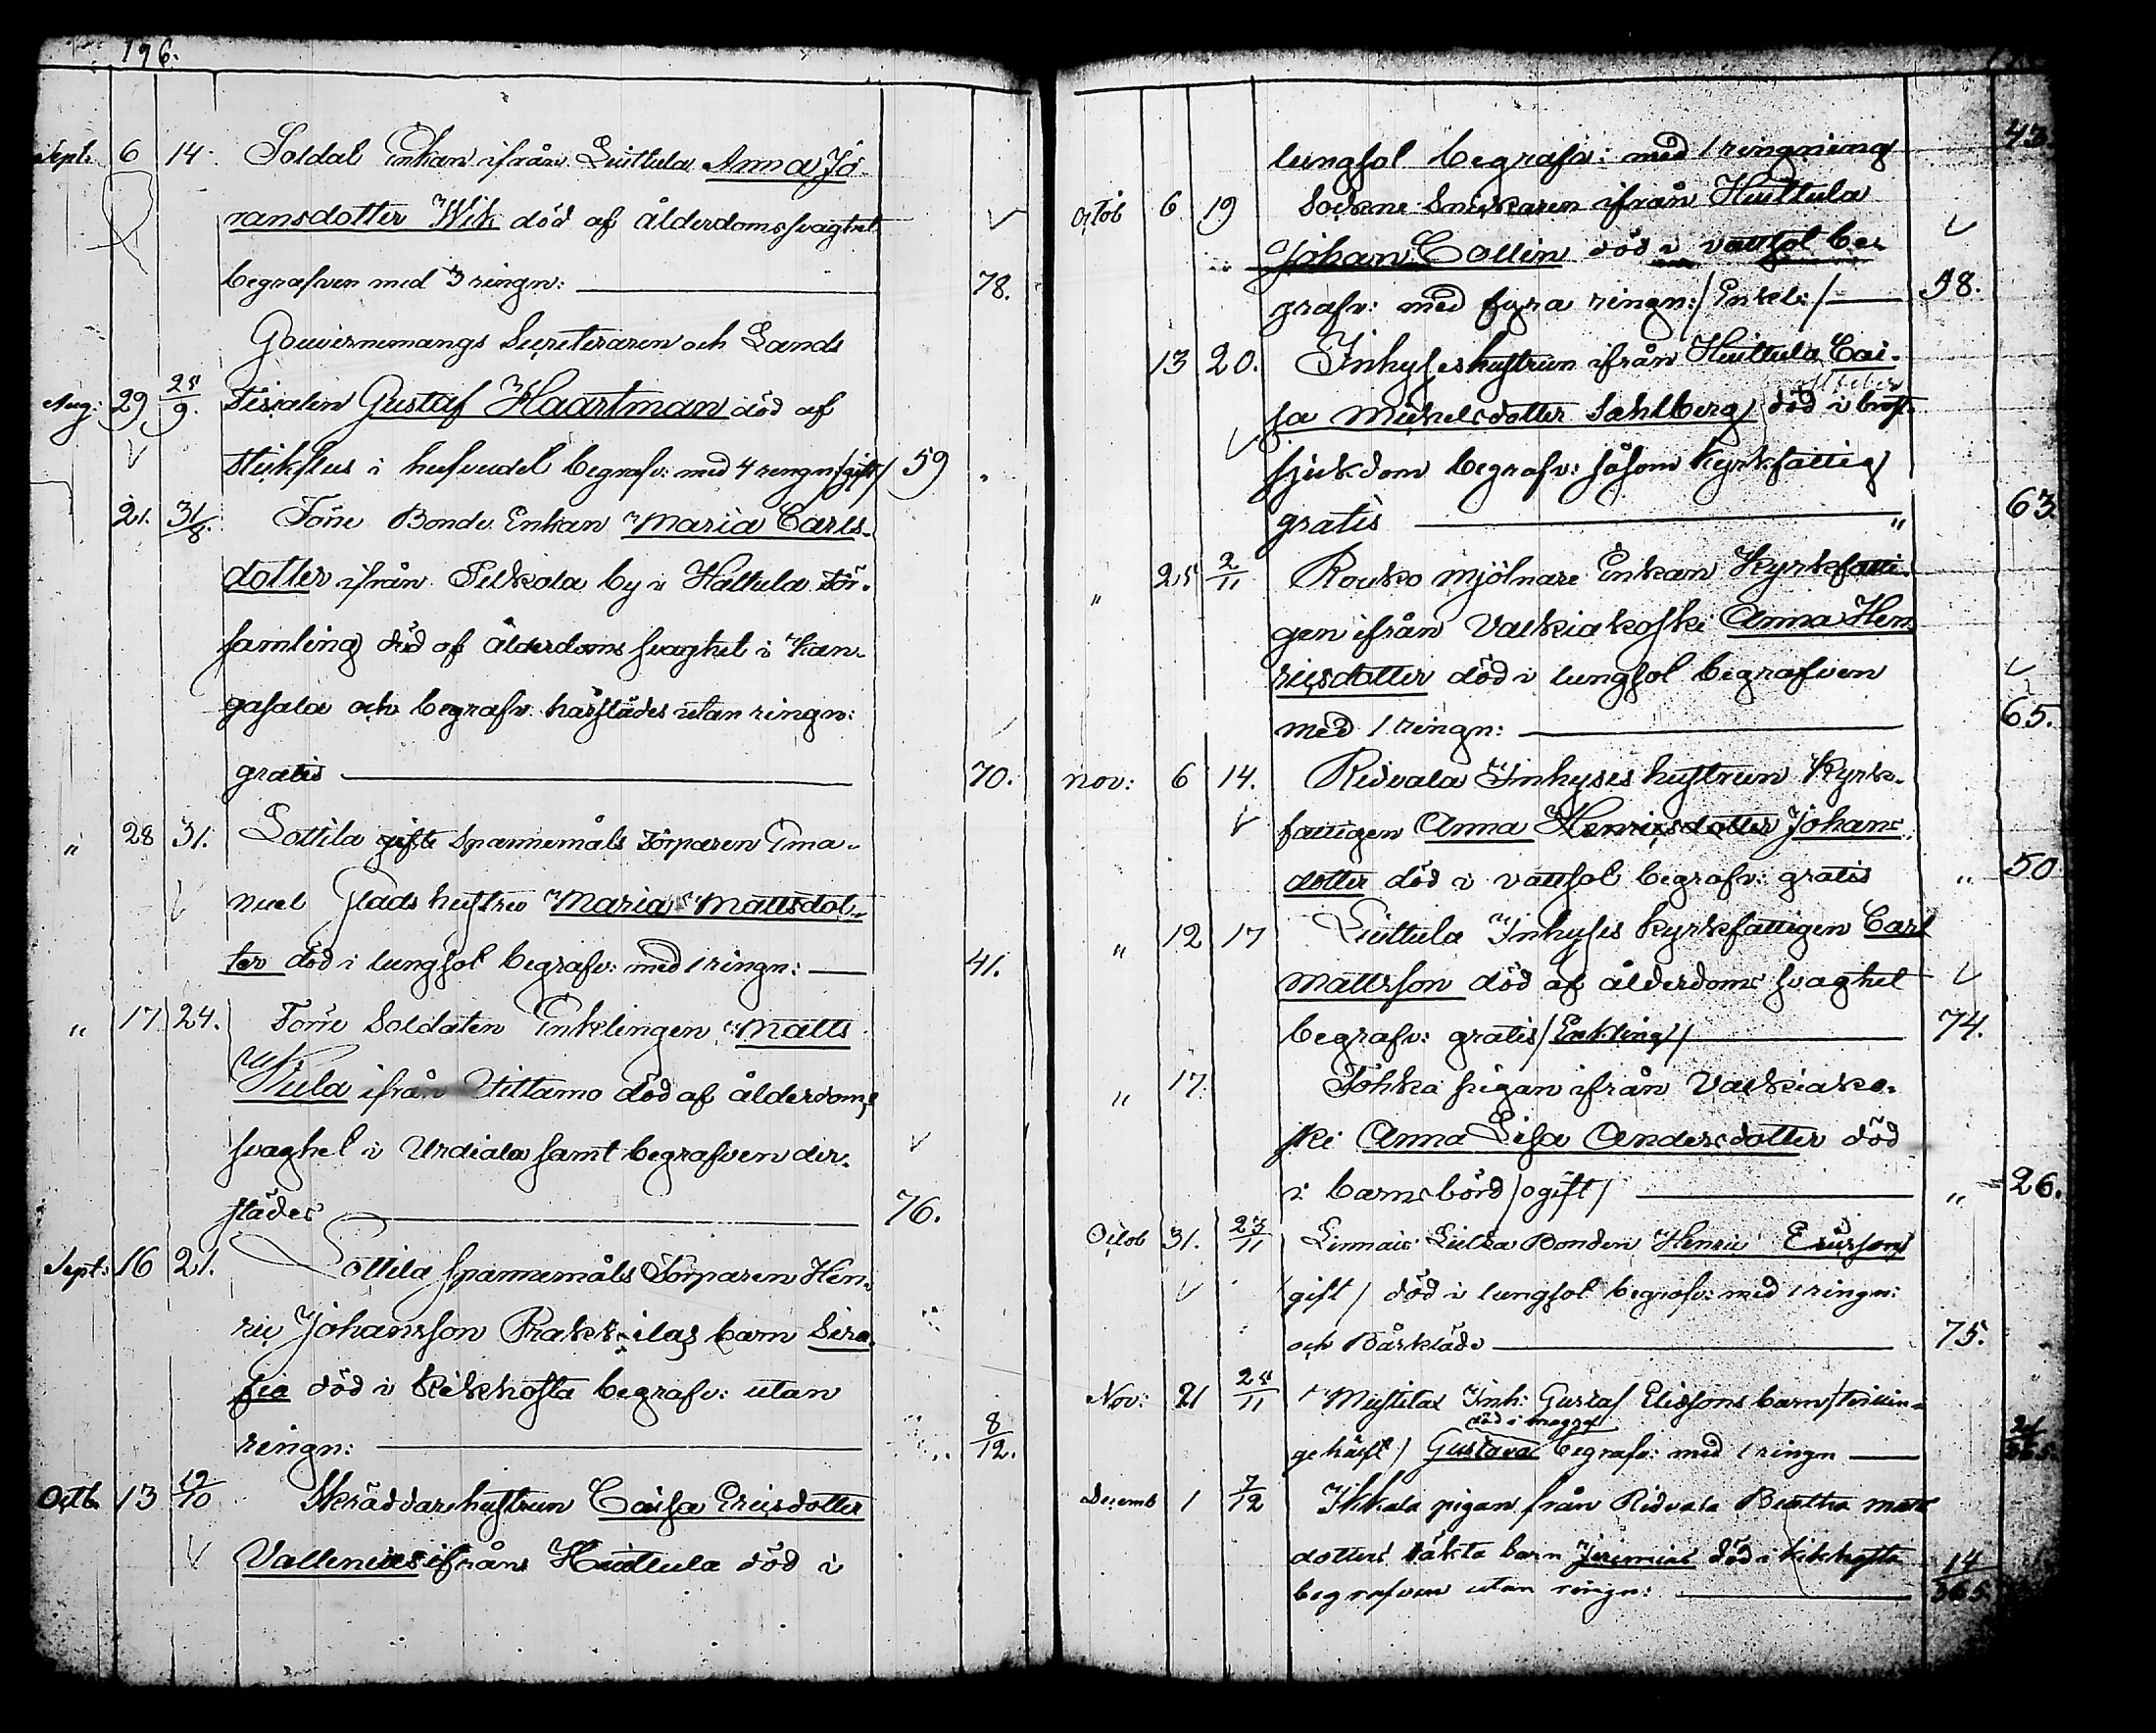 196.
Sept: 6 14. Soldat Enkan ifrån Liuttula Anna Jö-
ransdotter Wik död af ålderdomssvaghet
begrafven med 3 ringn: 78.
Gouvernemangs Secreteraren och Lands
Aug: 29 25/9. Fiscalen Gustaf Haartman död af
stickflus i hufvudet begrafv: med 4 ringn /gift/ 59 "
21. 31/8. Förre Bonde Enkan Maria Carls-
dotter ifrån Pelkola by i Hattula för-
samling död af ålderdoms svaghet i Kan-
gasala och begrafv. härstädes utan ringn:
gratis 70.
" 28 31. Lottila gifte Spannemåls Torparen Ema-
nuel Glads hustru Maria Mattsdot-
ter död i lungsot begrafv: med 1 ringn: 41.
" 17 24. Förre Soldaten Enklingen Matts
Kula ifrån Uittamo död af ålderdoms
svaghet i Urdiala samt begrafven der-
städes 76.
Sept: 16 21. Lottila spannemåls Torparen Hen-
ric Johansson Prakkilas barn Sera-
fia död i kikhosta begrafv: utan
ringn: 8/12.
Octb. 13 19/10 Skräddarehustrun Caisa Ericsdotter
Vallenius ifrån Huittula död i
lungsot begrafv: med 1 ringning 43.
Octob 6 19 Sockne Snickaren ifrån Huittula
Johan Collin död i vattsot be-
grafv: med fyra ringn: /Enkel:/ 58.
13 20. Inhyses hustrun ifrån Huittula Cai-
sa Michelsdotter Sahlberg död i bröst-
sjukdom begrafv: såsom kyrkfattig
gratis " 63
" 25 2/11 Rouko mjölnare Enkan Kyrkfatti-
gen ifrån Valkiakoski Anna Hen-
ricsdotter död i lungsot begrafven
med 1 ringn: 65.
Nov: 6 14. Ridvala Inhyses hustrun Kyrk-
fattigen Anna Henricsdotter Johans-
dotter död i vattsot begrafv: gratis " 50
" 12 17 Liuttula Inhyses kyrkfattigen Carl
Mattsson död af ålderdoms svaghet
begrafv: gratis /Enkling/ 74.
" 17. Töhkä pigan ifrån Valkiako-
ski Anna Lisa Andersdotter död
i barnsbörd /ogift/ " 26.
Octob 31. 23/11 Linnais Bonden Henric Ericsson
/gift/ död i lungsot begrafv: med 1 ringn:
och Bårkläde 75.
Nov: 21 25/11 Inh: Gustaf Elissons barn /tvillin-
död i magg
ge häift/ Gustava begrafv: med 1 ringn
Decemb 1 7/12 Ikkala pigan från Ridvala Beatha Matts
dotters oäkta barn Jeremias död i kikhosta
begrafven utan ringn: 14/365